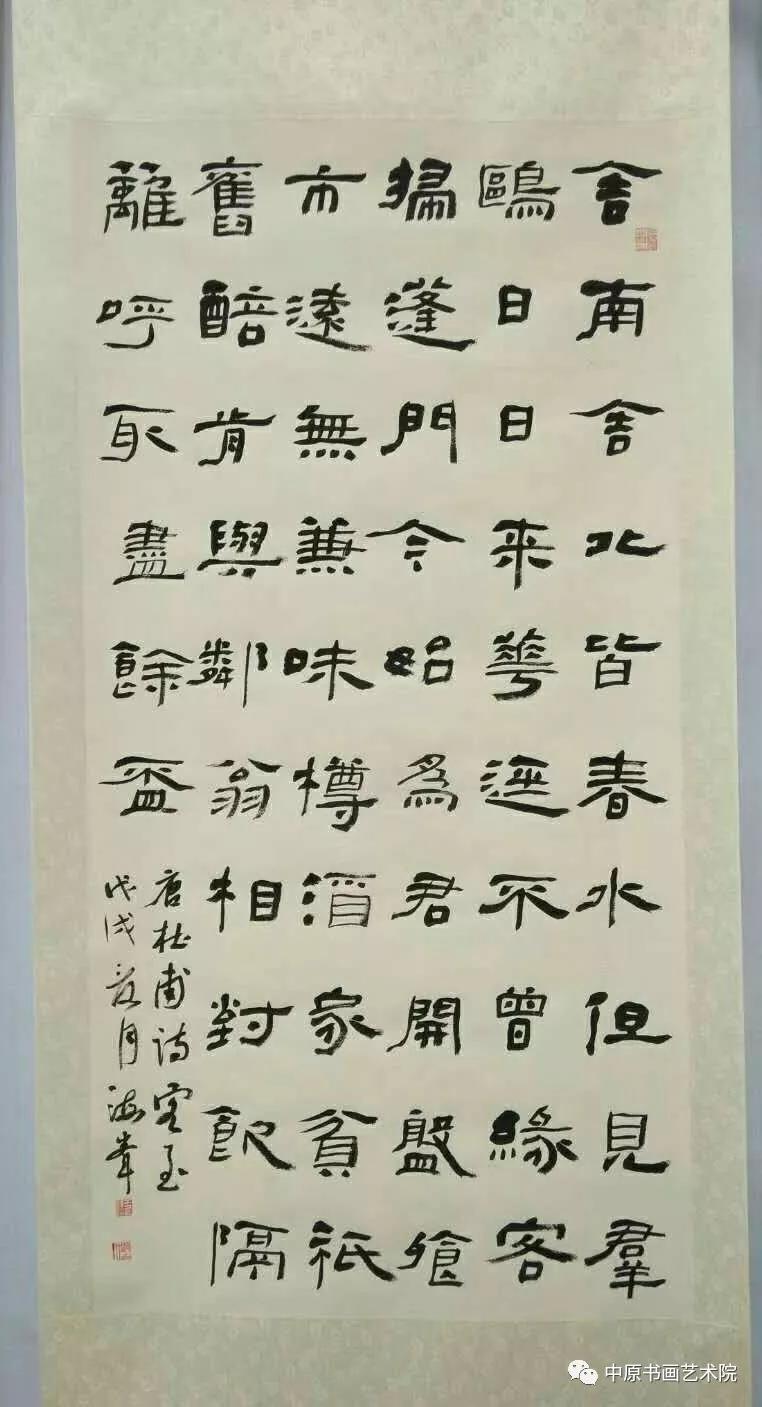 舍南舍北皆春水但見羣
鷗日日来華逕不曾緣客
掃蓬門今始爲君開盤飧
市遠無兼味樽酒家貧祇
舊醅肯與鄰翁相對飲隔
籬呼取盡餘盃
唐杜甫诗客至
戊戌夏月海峯
中原书画艺术院